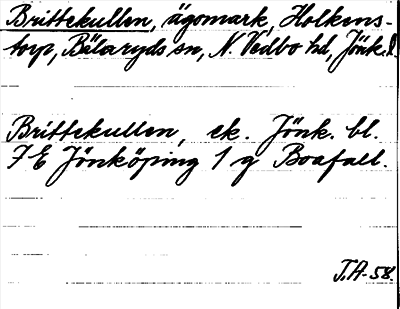 Brittekullen, ägomark, Holkens-
torp, Bälaryds sn, N. Vedbo hd, Jönk.l.
Brittekullen, ek. Jönk. bl.
7E Jönköping 1 g Boafall.
J.A-58.